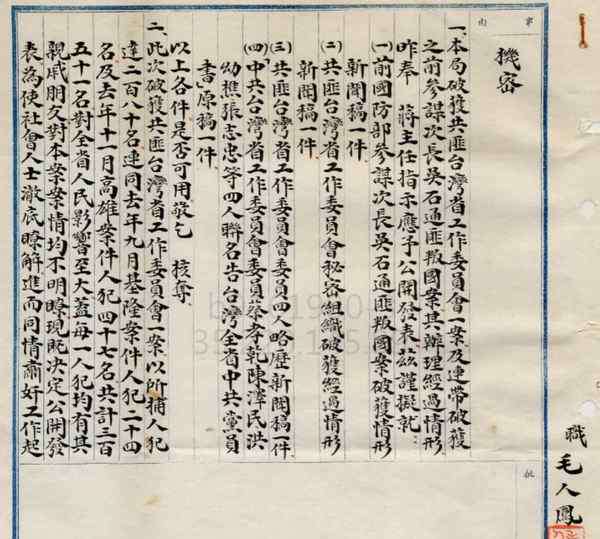 機密
一、本局破獲共匪台灣省工作委員會一案及連帶破獲
之前參謀次長吳石通匪叛國案其辦理經過情形
昨奉　蔣主任指示應予公開發表茲謹擬就
㈠前國防部參謀次長吳石通匪叛國案破獲情形
新聞稿一件
㈡共匪台灣省工作委員會秘密組織破獲經過情形
新聞稿一件
㈢共匪台灣省工作委員會委員四人略歷新聞稿一件
㈣中共台灣省工作委員會委員蔡孝乾陳澤民洪
幼樵張志忠等四人聯名告台灣全省中共黨員
書」原稿一件
以上各件是否可用敬乞　核奪
二、此次破獲共匪台灣省工作委員會一案以所捕人犯
達二百八十名連同去年九月基隆案件人犯二十四
名及去年十一月高雄案件人犯四十七名共計三百
五十一名對全省人民影響至大蓋每一人犯均有其
親戚朋友對本案案情均不明瞭現既決定公開發
表為使社會人士澈底瞭解進而同情肅奸工作起
職 毛人鳳